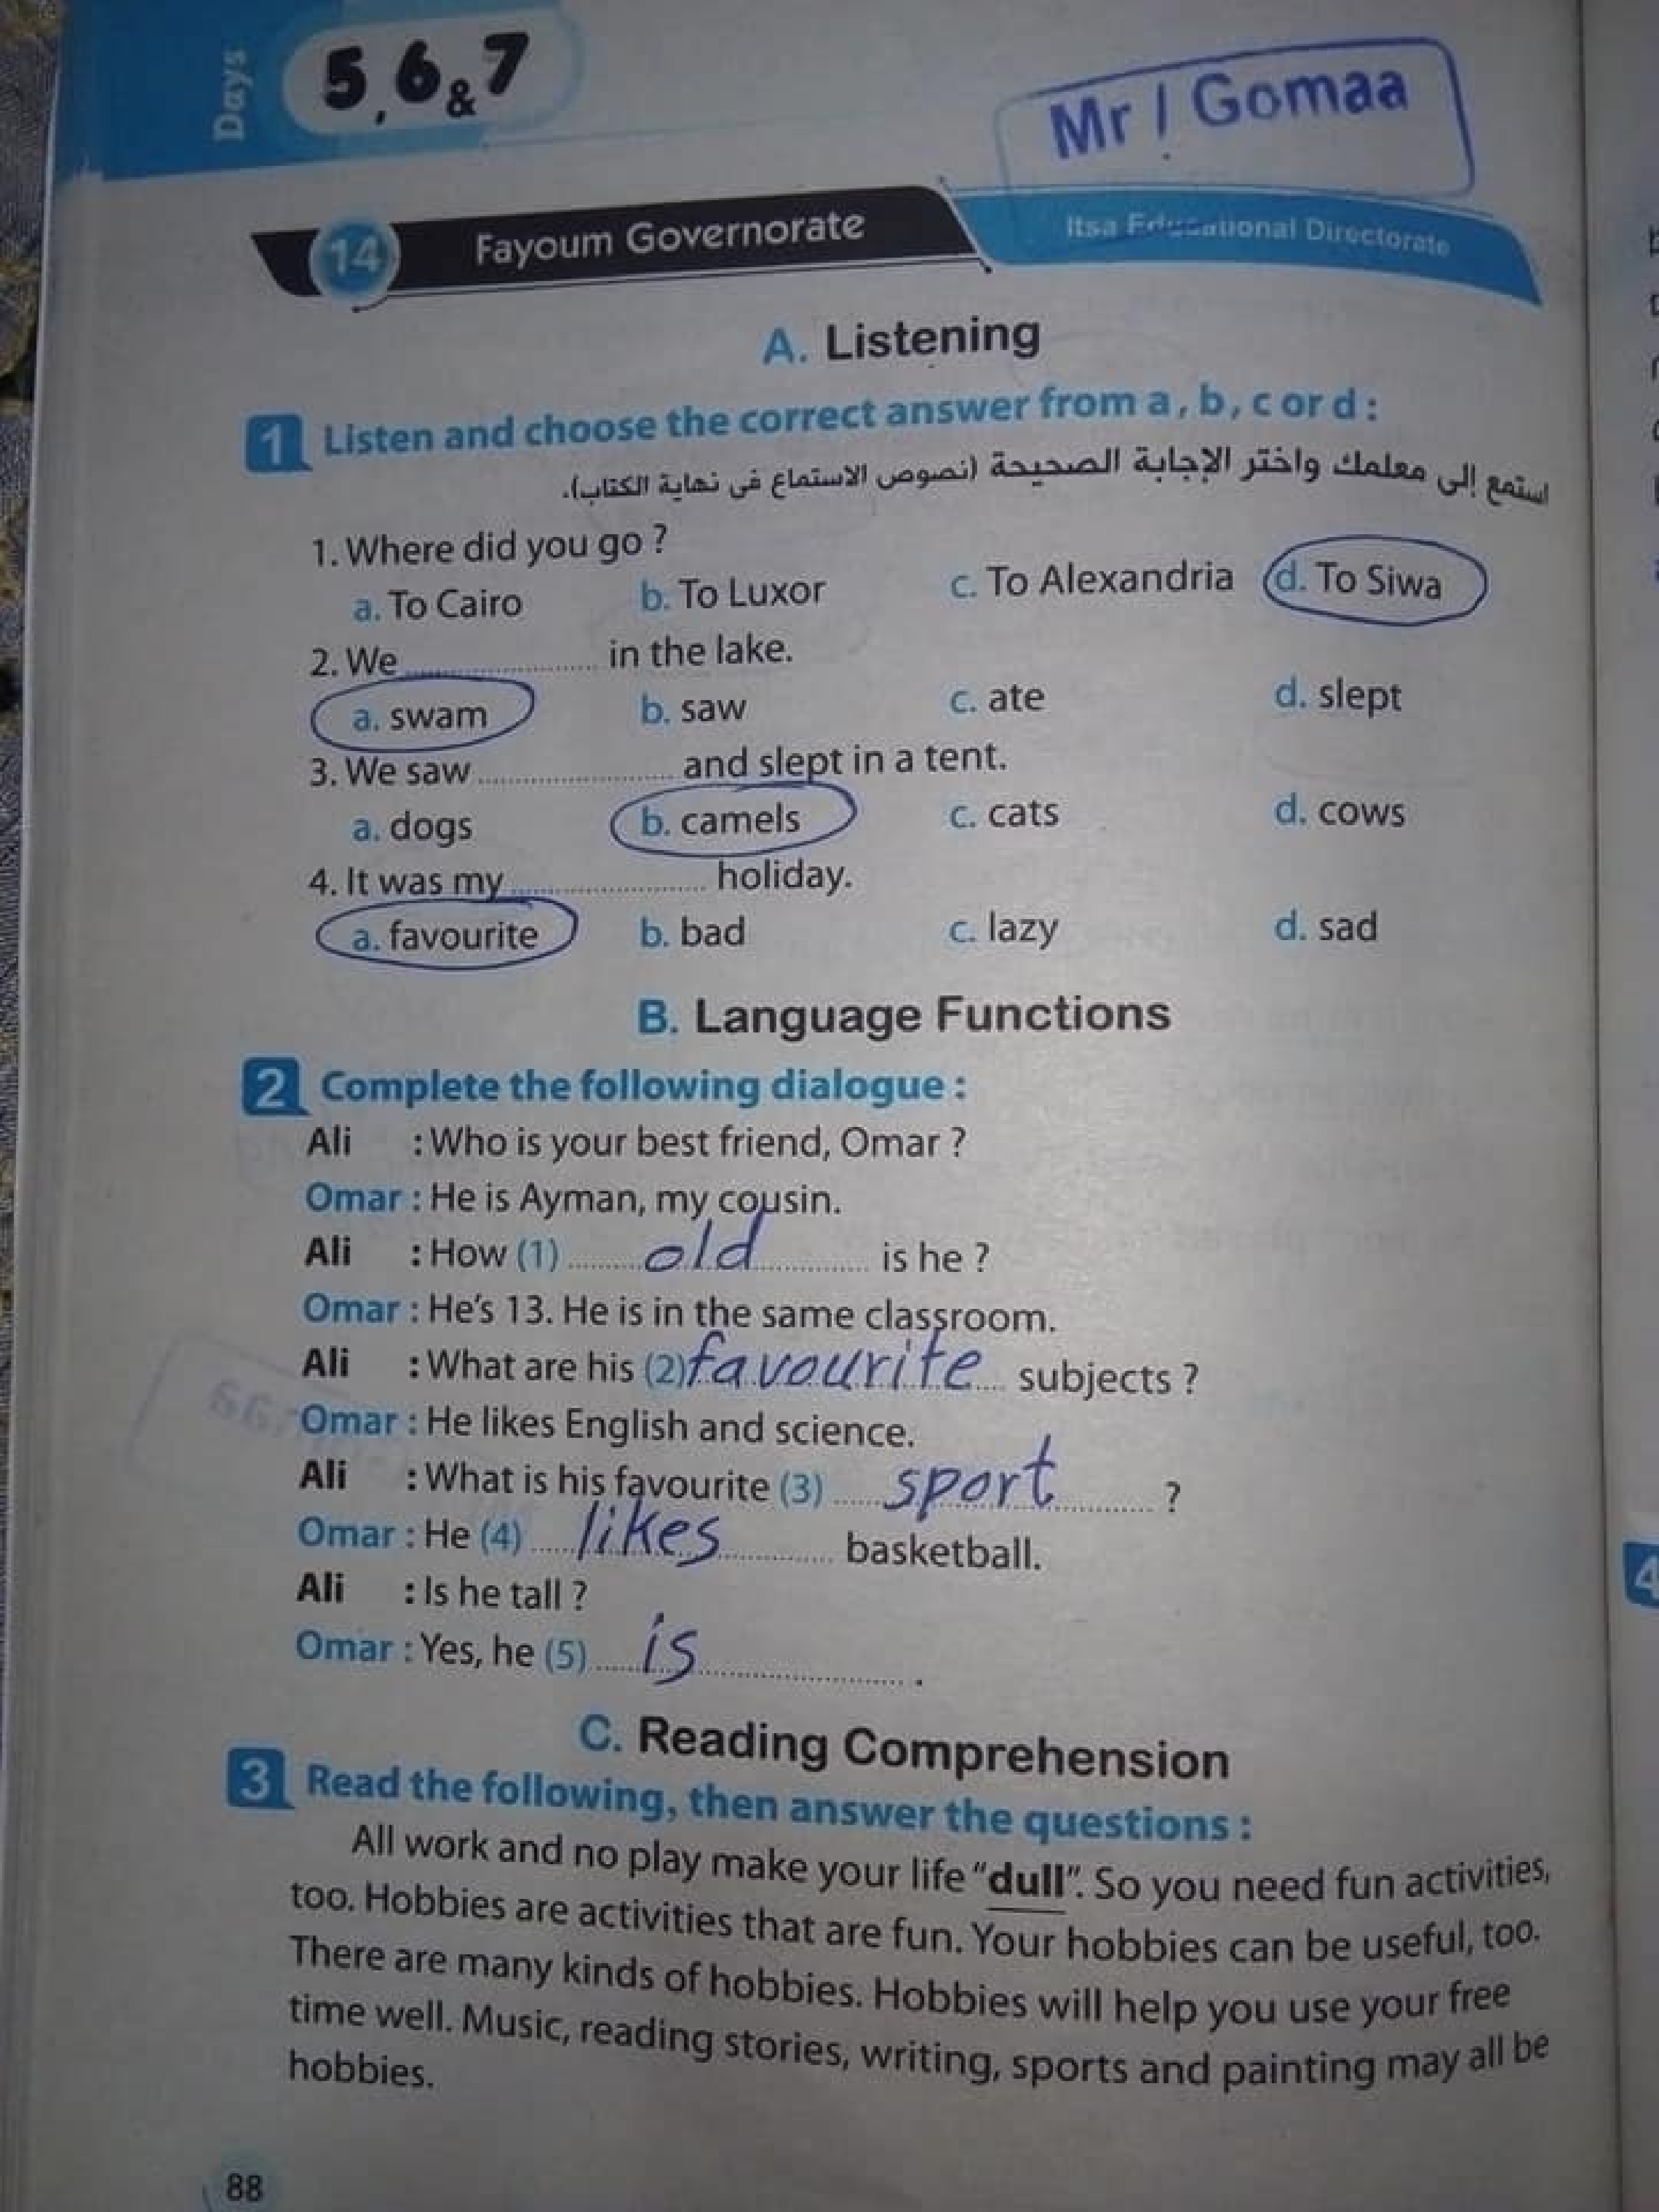 Days 5,6&7
Mr / Gomaa
14 Fayoum Governorate Itsa Educational Directorate
A. Listening
1 Listen and choose the correct answer from a, b, c or d :
استمع إلى معلمك واختر الإجابة الصحيحة (نصوص الاستماع فى نهاية الكتاب).
1. Where did you go ?
a. To Cairo b. To Luxor c. To Alexandria d. To Siwa
2. We .................... in the lake.
a. swam b. saw c. ate d. slept
3. We saw .................... and slept in a tent.
a. dogs b. camels c. cats d. cows
4. It was my .................... holiday.
a. favourite b. bad c. lazy d. sad
B. Language Functions
2 Complete the following dialogue :
Ali : Who is your best friend, Omar ?
Omar : He is Ayman, my cousin.
Ali : How (1) old is he ?
Omar : He's 13. He is in the same classroom.
Ali : What are his (2) favourite subjects ?
Omar : He likes English and science.
Ali : What is his favourite (3) sport ?
Omar : He (4) likes basketball.
Ali : Is he tall ?
Omar : Yes, he (5) is .
C. Reading Comprehension
3 Read the following, then answer the questions :
All work and no play make your life "dull". So you need fun activities,
too. Hobbies are activities that are fun. Your hobbies can be useful, too.
There are many kinds of hobbies. Hobbies will help you use your free
time well. Music, reading stories, writing, sports and painting may all be
hobbies.
4
88